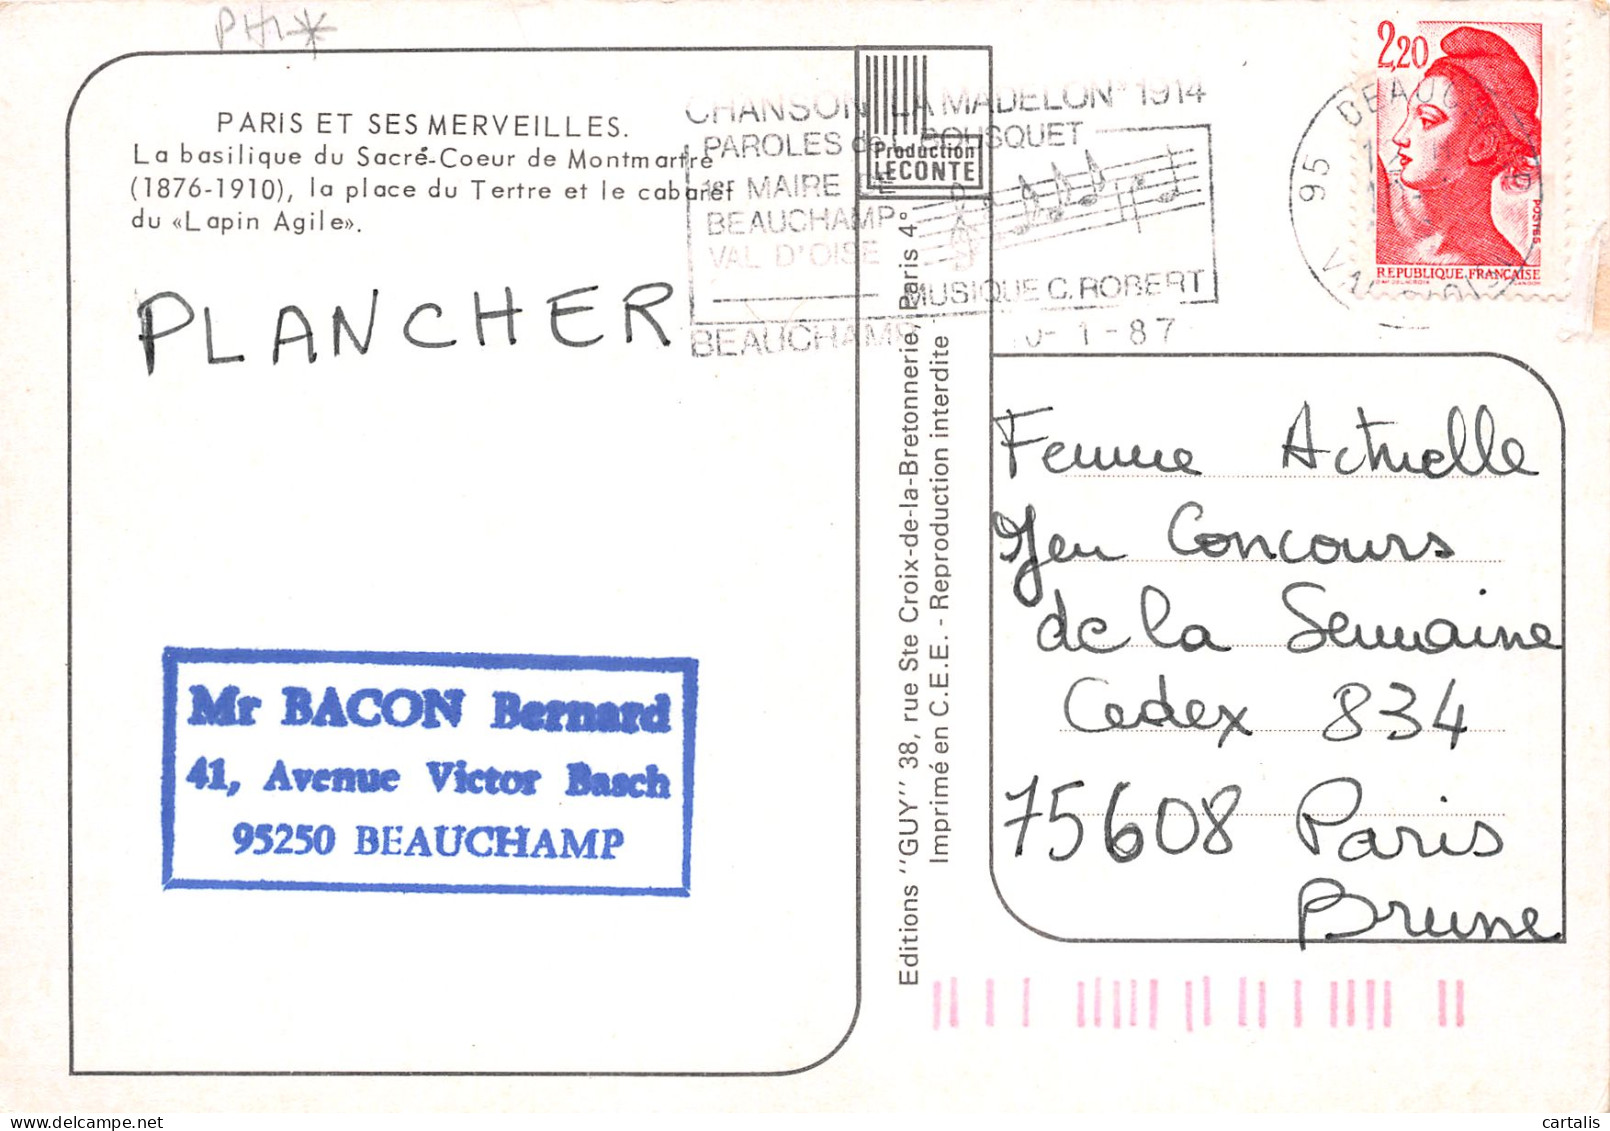 PH*
PARIS ET SES MERVEILLES.
La basilique du Sacré-Coeur de Montmartre
(1876-1910), la place du Tertre et le cabaret
du «Lapin Agile».
PLANCHER
Mr BACON Bernard
41, Avenue Victor Basch
95250 BEAUCHAMP
Production
LECONTE
CHANSON "LA MADELON" 1914
PAROLES de L. BOUSQUET
1er MAIRE DE
BEAUCHAMP
VAL D'OISE
MUSIQUE C. ROBERT
BEAUCHAMP
0-1-87
95 BEAUCHAMP
VAL D'OISE
2,20
POSTES
REPUBLIQUE FRANÇAISE
Editions "GUY" 38, rue Ste Croix-de-la-Bretonnerie, Paris 4°
Imprimé en C.E.E. - Reproduction interdite
Femme Actuelle
Jeu Concours
de la Semaine
Cedex 834
75608 Paris
Brune
cartalis